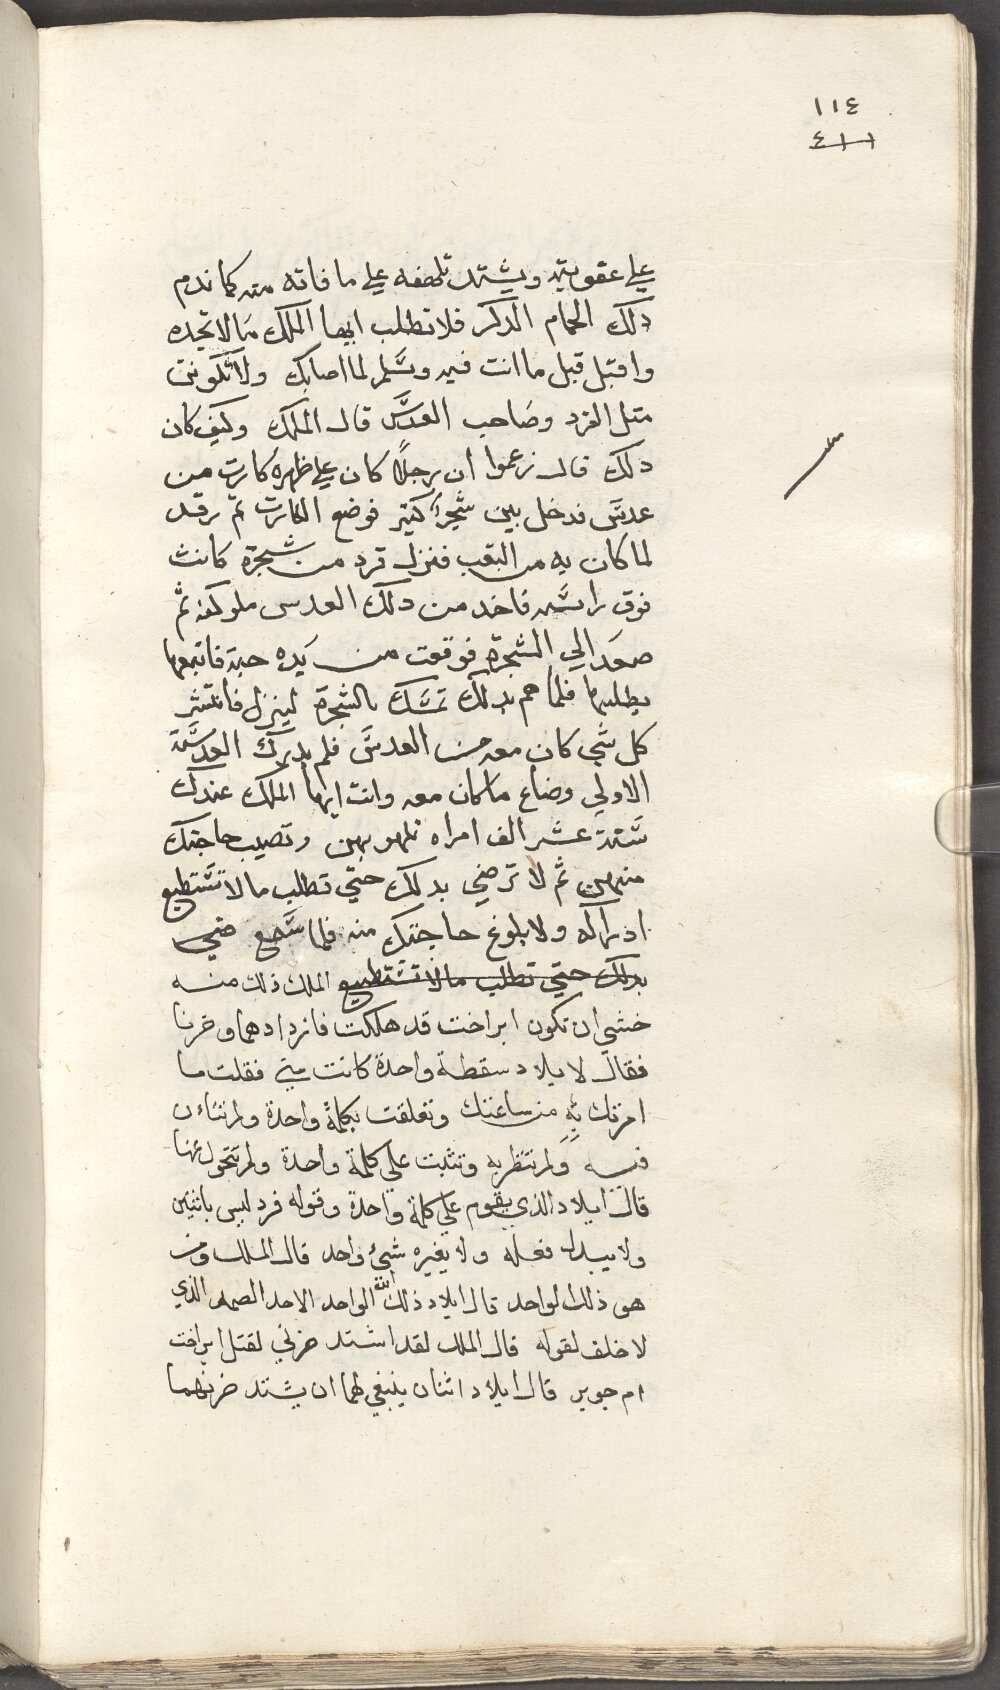 ١١٤
٤١١
علي عقوبته ويشتد تلهفه علي ما فاته منه كما ندم
دلك الحمام الدكر فلا تطلب ايها الملك مالا تجده
واقبل قبل ما انت فيه وسلم لما اصابك ولا تكونن
متل القرد وصاحب العدس قال الملك وكيف كان
دلك قال زعموا ان رجلاً كان علي ظهره كارت من
عدس فدخل بين شجراً كتير فوضع الكارت تم رقد
لما كان به من التعب فنزل قرد من شجرة كانت
فوق راسه فاخد من دلك العدس ملو كفه ثم
صعد الي الشجرة فوقعت من يده حبة فاتبعها
يطلبها فلما هم بدلك تمسك بالشجرة لينزل فانتثر
كل شي كان معه من العدس فلم يدرك العدسة
الاولي وضاع ما كان معه وانت ايها الملك عندك
ستة عشر الف امراه تلهو بهن وتصيب حاجتك
منهن ثم لا ترضي بدلك حتي تطلب ما لا تستطيع
ادراكه ولا بلوغ حاجتك منه فلما سمع
بدلك حتي تطلب ما لا تستطيع الملك ذلك منه
خشي ان تكون ابراخت قد هلكت فازداد هما وحزنا
فقال لايلاد سقطة واحدة كانت مني فقلت ما
امرتك به من ساعتك وتعلقت بكلمة واحدة ولم تتأن
فيه ولم تنتظر به وتثبت علي كلمة واحدة ولم تتحول عنها
قال ايلاد الذي يقوم علي كلمة واحدة وقوله فرد ليس باثنين
ولا يبدل فعله ولا يغيره شئ واحد قال الملك ومن
هو ذلك الواحد قال ايلاد ذلك الله الواحد الاحد الصمد الذي
لا خلف لقوله قال الملك لقد اشتد حزني لقتل ابراخت
ام جوبر قال ايلاد اثنان ينبغي لهما ان يشتد حزنهما